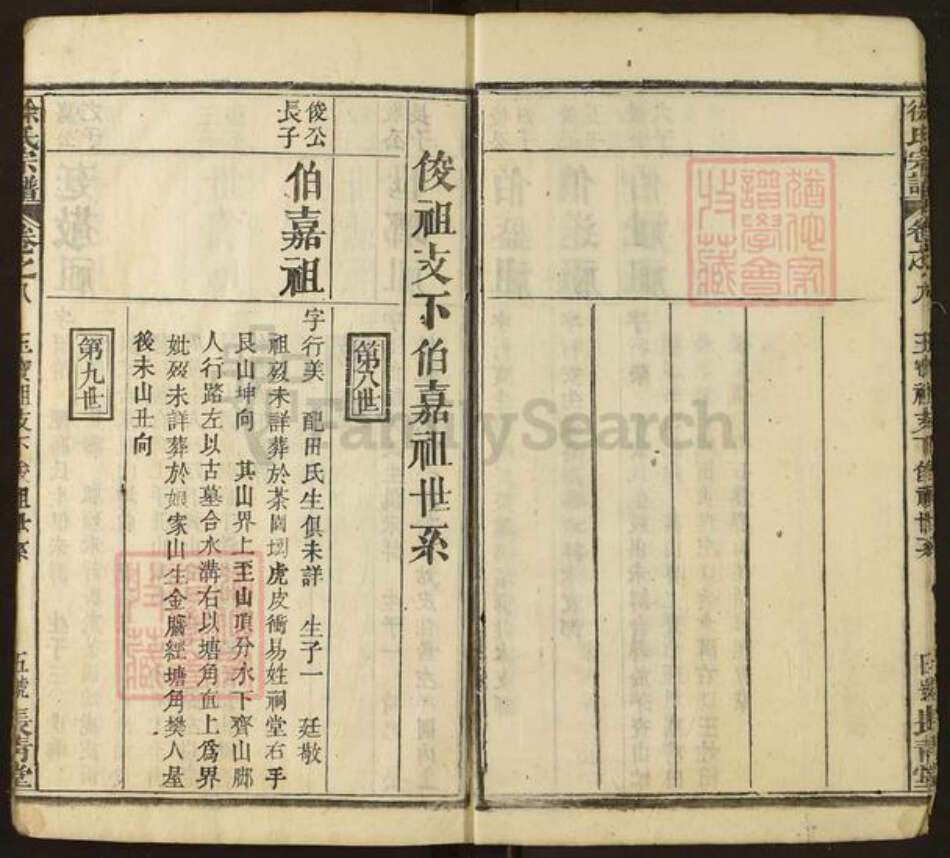 徐氏宗譜
俊祖支下伯嘉祖世系
第八世
俊公
長子
伯嘉祖
字行美 配田氏生俱未詳 生子一 廷敬
祖歿未詳葬於茶園壋虎皮衝易姓祠堂右手
艮山坤向 其山界上至山頂分水下齊山腳
人行路左以古墓合水溝右以塘角直上爲界
妣歿未詳葬於娘家山生金塍經塘角樊人屋
後未山丑向
第九世
徐氏宗譜
卷之八
玉寶祖支下俊祖世系
伍號
長青堂
猶他家
譜學會
收藏
FamilySearch